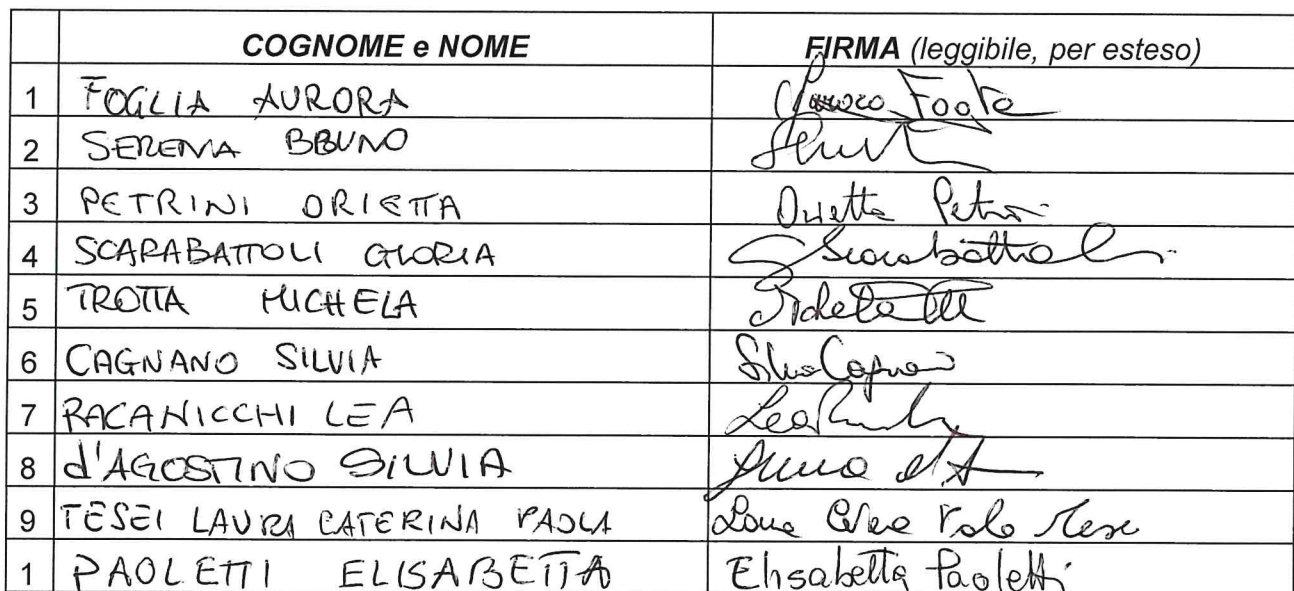 COGNOME e NOME FIRMA (leggibile, per esteso)
1 FOGLIA AURORA
2 SERENA BBUNO
3 PETRINI ORIETTA Orietta Petrini
4 SCARABATTOLI GLORIA Scarabattoli
5 TROTTA MICHELA
6 CAGNANO SILVIA Silvia Cagnano
7 RACANICCHI LEA Lea
8 d'AGOSTINO SILVIA
9 TESEI LAURA CATERINA PAOLA
1 PAOLETTI ELISABETTA Elisabetta Paoletti